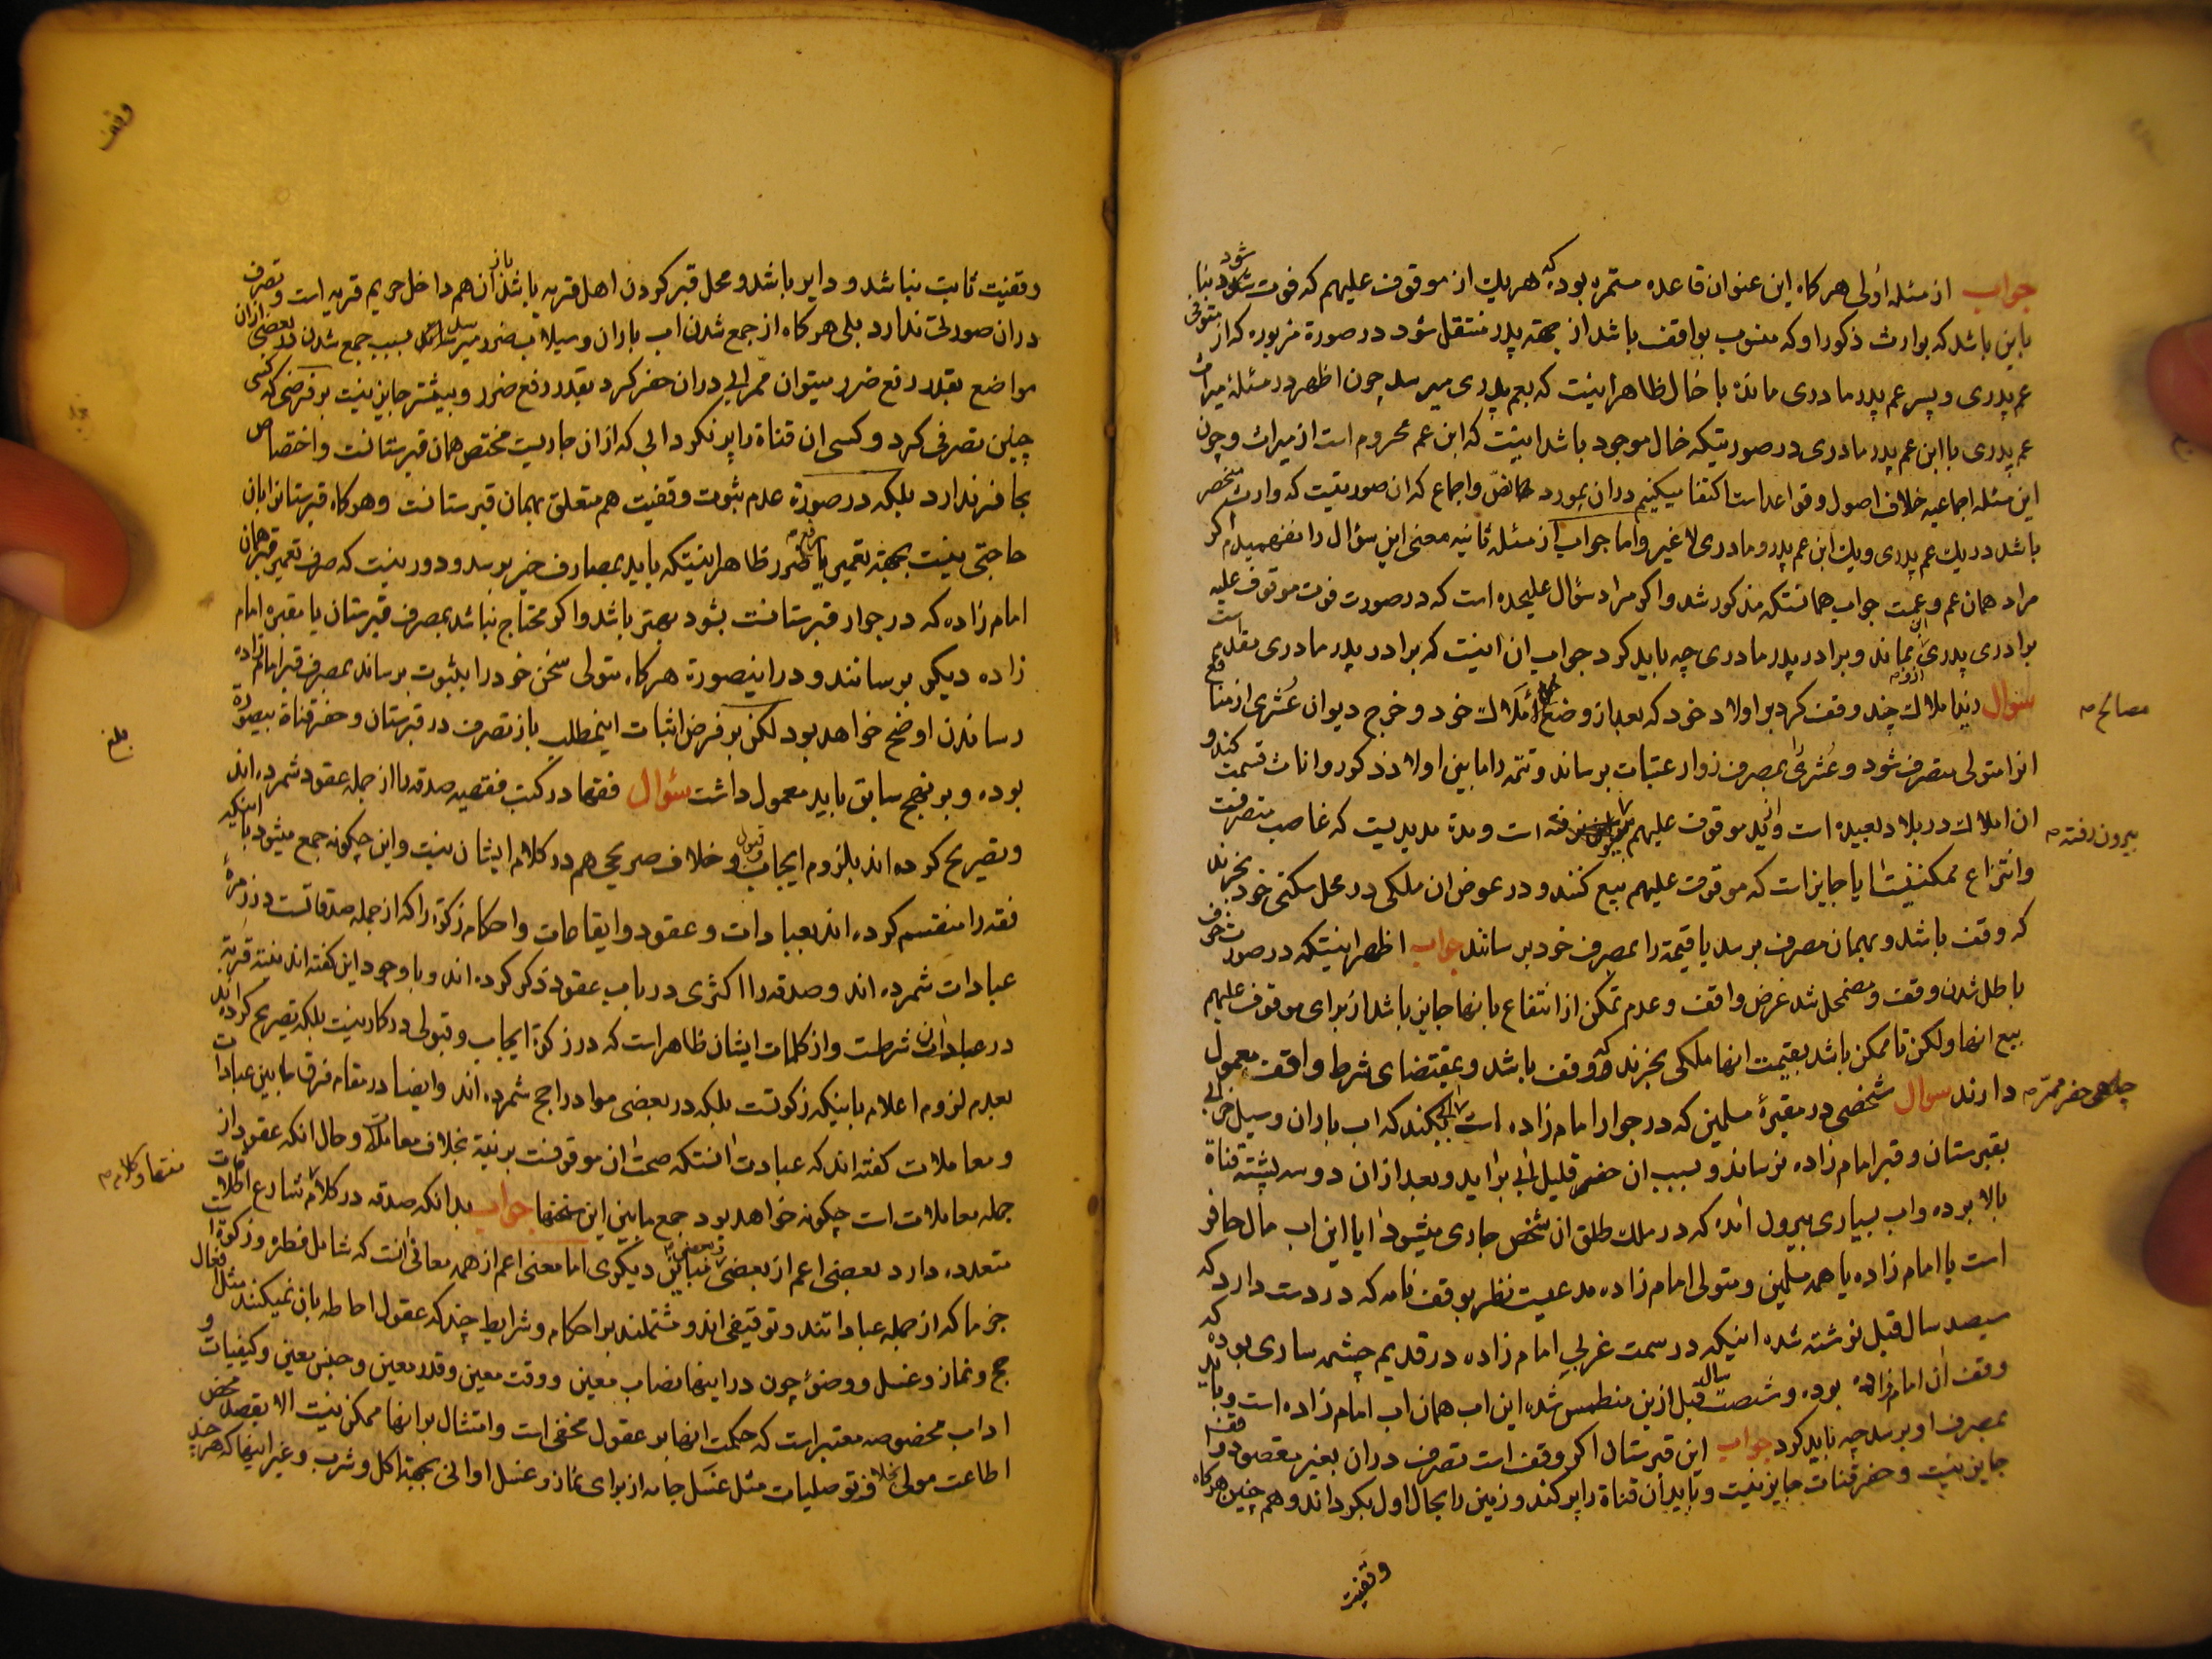 جواب از مسئله اولی هرکاه این عنوان قاعده مستمره بوده که هریك از موقوف علیهم که فوت شود بنا
باین باشد که بوارث ذکور او که منسوب بواقف باشد از جهة پدر منتقل شود در صورة مزبوره که از متوفی
عم پدری و پسر عم پدر مادری مانده با خال ظاهر اینست که بعم پدری میرسد چون اظهر در مسئلۀ میراث
عم پدری با ابن عم پدر مادری در صورتیکه خال موجود باشد اینست که ابن عم محروم است از میراث و چون
این مسئله اجماعیه خلاف اصول و قواعد است اکتفا میکنیم در ان بمورد نصّ و اجماع که ان صورتیست که وارث منحصر
باشد در یك عم پدری و یك ابن عم پدر و مادری لا غیر و اما جواب از مسئله ثانیه معنی این سؤال را نفهمیدم اکر
مراد همان عم و عمیت جواب همانستکه مذکور شد و اکر مراد سؤال علیحده است که در صورت فوت موقوف علیه
برادری پدری از او بماند و برادر پدر مادری چه باید کرد جواب ان اینست که برادر پدر مادری مقدم است
سؤال زید املاك چند وقف کرد بر اولاد خود که بعد از وضع مصالح املاك خود و خرج دیوان عُشری از منافع
انرا متولی متصرف شود و عُشری بمصرف زوار عتبات برساند و تتمه را مابین اولاد ذکور و اناث قسمت کند و
ان املاك در بلاد بعیده است و از ید موقوف علیهم بیرون رفته است و مدة مدیدیست که غاصب متصرفست
و انتزاع ممکن نیست ایا جایز است که موقوف علیهم بیع کنند و در عوض ان ملکی در محل سکنی خود بخرند
که وقف باشد و بهمان مصرف برسد یا قیمة را بمصرف خود برسانند جواب اظهر اینستکه در صورت خوف
باطل شدن وقف و مضمحل شد غرض واقف و عدم تمکن از انتفاع بانها جایز باشد از برای موقوف علیهم
بیع انها ولکن تا ممکن باشد بقیمت انها ملکی بخرند که وقف باشد و بمقتضای شرط واقف معمول
دارند سؤال شخصی در مقبرۀ مسلمین که در جوار امام زاده است چاهی حفر میکند که اب باران و سیل خرابی
بقبرستان و قبر امام زاده نرساند و بسبب ان حفر قلیل ابی براید و بعد از ان دو سه پشته قناة
بالا برده و اب بسیاری بیرون امده که در ملك طلق ان شخص جاری میشود ایا این اب مال حافر
است یا امام زاده یا همه مسلمین و متولی امام زاده مدعیست نظر بوقف نامه که در دست دارد که
سیصد سال قبل نوشته شده اینکه در سمت غربی امام زاده در قدیم چشمه ساری بوده که
وقف ان امام زاده بوده و شصت سال قبل ازین منطمس شده این اب همان اب امام زاده است و باید
بمصرف او برسد چه باید کرد جواب این قبرستان اکر وقف است تصرف دران بغیر مقصود واقف
جایز نیست و حفر قنات جایز نیست و باید ان قناة را پر کند و زمین را بحال اول بکرداند و هم چنین هرکاه
وقفیت
مصالح
بیرون رفته
چاهی حفر
وقف
وقفیت ثابت نباشد و دایر باشد و محل قبر کردن اهل قریه باشد باز ان هم داخل حریم قریه است و تصرف
دران صورتی ندارد بلی هرکاه از جمع شدن اب باران و سیلاب ضرر میرسد بسبب جمع شدن در بعضی ازان
مواضع بقدر رفع ضرر میتوان ممر ابی دران حفر کرد بقدر رفع ضرر و بیشتر جایز نیست بر فرضی که کسی
چنین تصرفی کرد و کسی ان قناة را پر نکرد ابی که ازان جاریست مختص همان قبرستانست و اختصاص
بحافر ندارد بلکه در صورة عدم ثبوت وقفیت هم متعلق بهمان قبرستانست و هرکاه قبرستان را بان
حاجتی نیست بجهة تعمیر یا رفع ضرر ظاهر اینستکه باید بمصارف خیر برسد و دور نیست که صرف تعمیر قبر همان
امام زاده که در جوار قبرستانست بشود بهتر باشد و اکر محتاج نباشد بمصرف قبرستان یا مقبره امام
زاده دیکر برسانند و در اینصورة هرکاه متولی سخن خود را بثبوت برساند بمصرف قبر امام زاده
رساندن اوضح خواهد بود لکن بر فرض اثبات اینمطلب باز تصرف در قبرستان و حفر قناة بیصورة
بوده و بر نهج سابق باید معمول داشت سؤال فقها در کتب فقهیه صدقه را از جمله عقود شمرده اند
و تصریح کرده اند بلزوم ایجاب و قبول و خلاف صریحی هم در کلام ایشان نیست و این چکونه جمع میشود با اینکه
فقه را منقسم کرده اند بعبادات و عقود و ایقاعات و احکام و زکوة را که از جمله صدقاتست در زمرۀ
عبادات شمرده اند و صدقه را اکثری در باب عقود ذکر کرده اند و با وجود این کفته اند نیة قربة
در عبادات شرطست و از کلمات ایشان ظاهر است که در زکوة ایجاب و قبولی در کار نیست بلکه تصریح کرده اند
بعدم لزوم اعلام باینکه زکوتست بلکه در بعضی موارد راجح شمرده اند و ایضا در مقام فرق مابین عبادات
و معاملات کفته اند که عبادت انستکه صحت ان موقوفست بر نیة بخلاف معاملات و حال انکه عقود از
جمله معاملات است چکونه خواهد بود جمع مابین این سخنها جواب بدانکه صدقه در کلام شارع اطلاقات
متعدده دارد بعضی اعم از بعضی و بعضی مباین دیکری اما معنی اعم از همه معانی انست که شامل فطره و زکوة است
خرما که از جمله عباداتند و توقیفی اند و مشتملند بر احکام و شرایط چند که عقول احاطه بان نمیکنند مثل افعال
حج و نماز و غسل و وضوء چون در اینها نصاب معین و وقت معین و قدر معین و جنس معین و کیفیات و
اداب مخصوصه معتبر است که حکمت انها بر عقول مخفی است و امتثال بر انها ممکن نیست الا بقصد محض
اطاعت مولی بخلاف توصلیات مثل غسل جامه از برای نماز و غسل اوانی بجهة اکل و شرب و غیر اینها که هر چند
بلغ
فقها و کلام